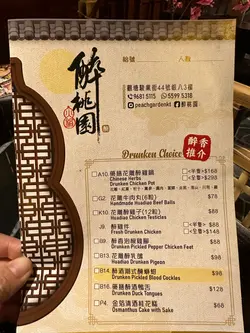 醉桃園
火鍋
枱號
人數
觀塘駿業街44號舖八3樓
9681 5115 5599 5318
peachgardenkt 醉桃園
Drunken Choice
醉香推介
A10. 藥膳花雕醉雞鍋 <半隻>$168
Chinese Herbs <全隻>$298
Drunken Chicken Pot
G2 花雕牛肉丸(6粒) $78
Handmade Huadian Beef Balls
K10 花雕醉雞子(12粒) $88
Huadian Chicken Testicles
J9. 醉雞件 <半隻>$98
Fresh Drunken Chicken <全隻>$188
B9.
Drunken Pickled Pepper Chicken Feet $68
B13. 花雕醉乳鴿 $98
Huadian Drunken Pigeon
B14. 醉酒潮式醃蟛蜞 $98
Drunken Pickled Blood Cockles
B16. 藥膳醉酒鴨舌 $128
Drunken Duck Tongues
P4. 金箔清酒桂花糕 $68
Osmanthus Cake with Sake